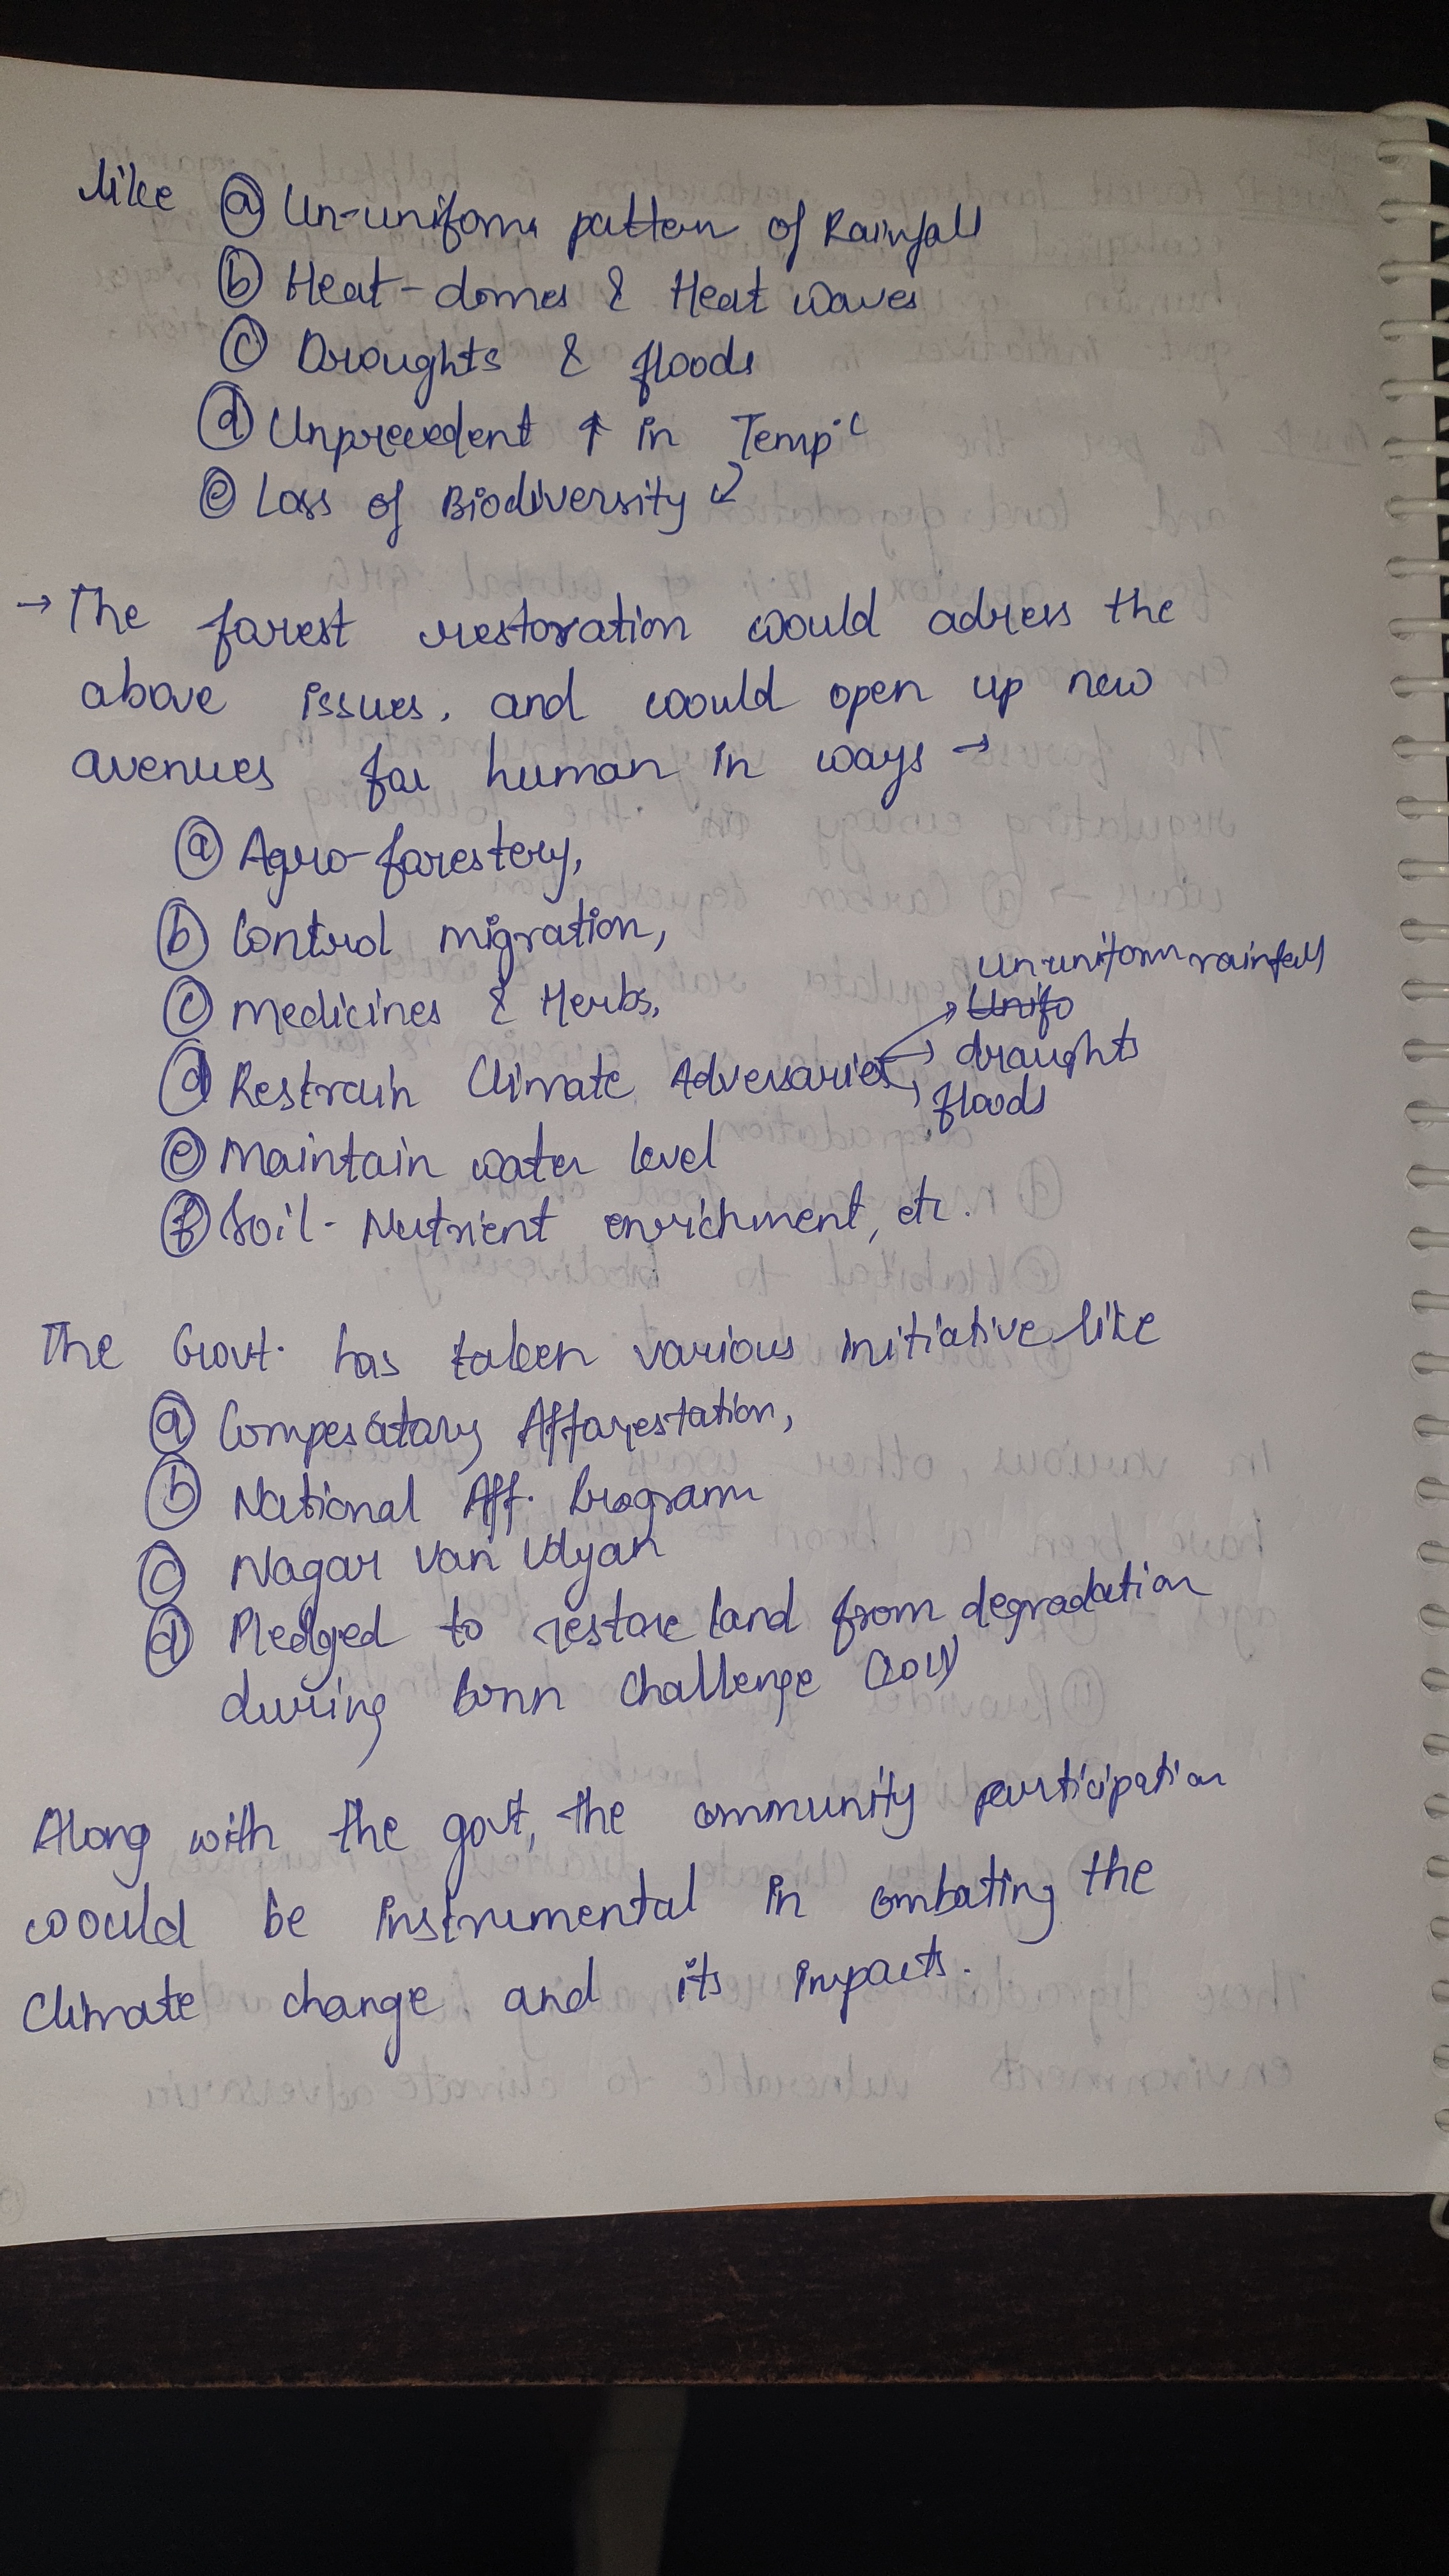 like ⓐ Un-uniform pattern of Rainfall
ⓑ Heat-domes & Heat waves
ⓒ Droughts & floods
ⓓ Unprecedent ↑ in Temp.
ⓔ Loss of Biodiversity
→ The forest restoration would adress the
above issues, and would open up new
avenues for human in ways →
ⓐ Agro-forestery,
ⓑ Control migration,
ⓒ Medicines & Herbs,
un-uniform rainfall
ⓓ Restrain Climate Adversaries → Unifo
→ draughts
→ floods
ⓔ Maintain water level
ⓕ Soil-Nutrient enrichment, etc.
The Govt. has taken various initiative like
ⓐ Compesatary Afforestation,
ⓑ National Aff. Program
ⓒ Nagar Van Udyan
ⓓ Pledged to restore land from degradation
during Bonn Challenge
Along with the govt, the community participation
would be instrumental in combating the
Climate change and its impacts.